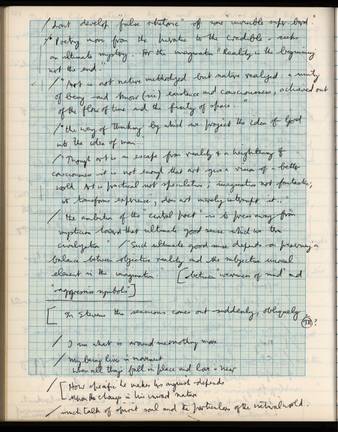 / Don't develop false rhetoric of
/ Poetry moves from the private to the credible - seeks
an ultimate mystery. For the imagination "Reality is the beginning
not the end."
/ "Art is not nature methodized but nature realized - a unity
of being and know (sic) existence and consciousness, achieved out
of the flow of time and the fixity of space."
/ "the way of thinking by which we project the idea of God
into the idea of man -
/ Though art is an escape from reality & a heightening of
consciousness it is not enough that art give a vision of a better
world. Art is practical not speculative, imaginative not fantastic,
it transforms experience, does not merely interrupt it.
/ the ambition of the "central poet" is to press away from
mysticism toward that ultimate good sense which we term
civilization" / Such ultimate good sense depends on preserving a
balance between objective reality and the subjective unreal
element in the imagination [ between "awareness of mind" and
"aggressive symbols" ]
[ In Stevens the seasons comes out suddenly, obliquely ?
/ I am what is around me
/ my being live in
when all things fall in place and
/ [ How specific he makes his depends
the change in his mind
/ such talk of spirit soul and the particulars of the natural world.